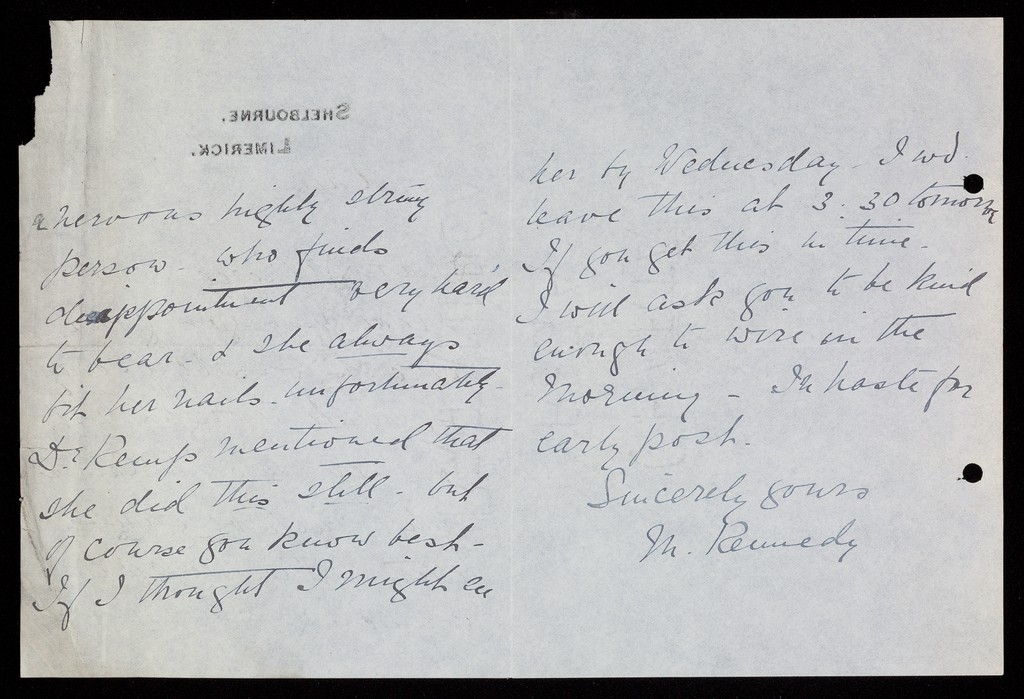 SHELBOURNE,
LIMERICK.
a nervous highly strung
person - who finds
disappointment very hard
to bear - & she always
bit her nails - unfortunately -
Dr. Kemp mentioned that
she did this still - but
of course you know best -
If I thought I might see
her by Wednesday - I wd.
leave this at 3.30 tomorrow
If you get this in time -
I will ask you to be kind
enough to wire in the
Morning - In haste for
early post -
Sincerely yours
M. Kennedy